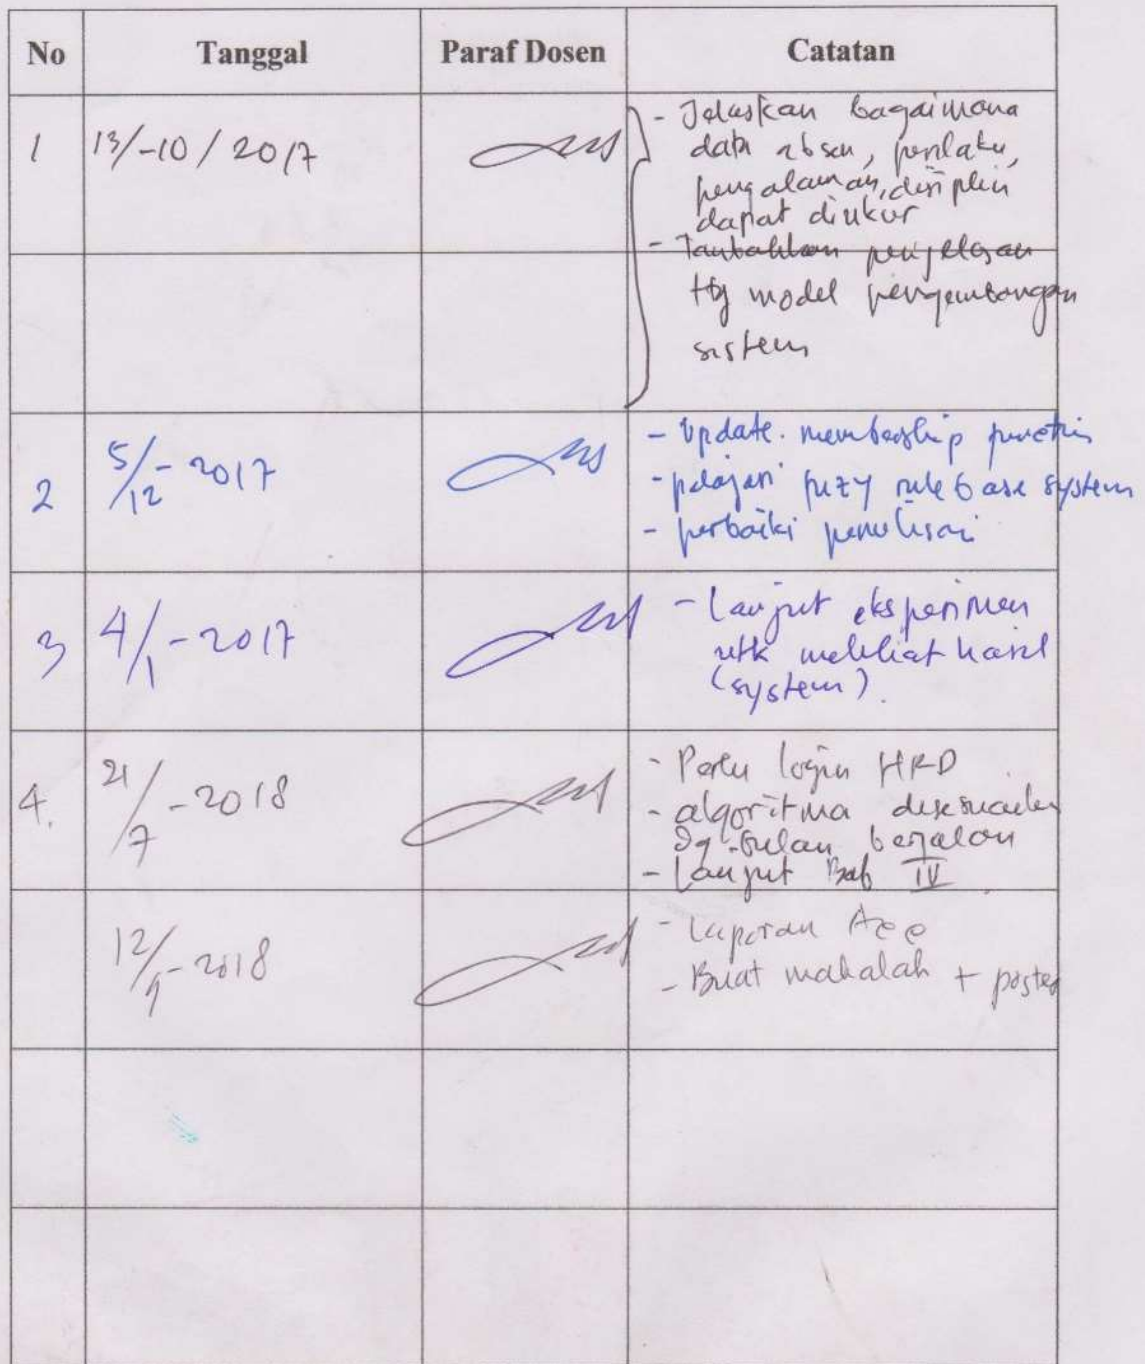 No Tanggal Paraf Dosen Catatan
1 13/-10/2017
- Jelaskan bagaimana
data absen, perilaku,
pengalaman, disiplin
dapat diukur
- Tambahkan penjelasan
ttg model pengembangan
sistem
2 5/12-2017
- Update membership function
- pelajari fuzzy rule base system
- perbaiki penulisan
3 4/1-2017
- Lanjut eksperimen
utk melihat hasil
(system).
4. 21/7-2018
- Perlu login HRD
- algoritma disesuaikan
dg bulan berjalan
- Lanjut Bab IV
12/9-2018
- Laporan Acc
- Buat makalah + poster